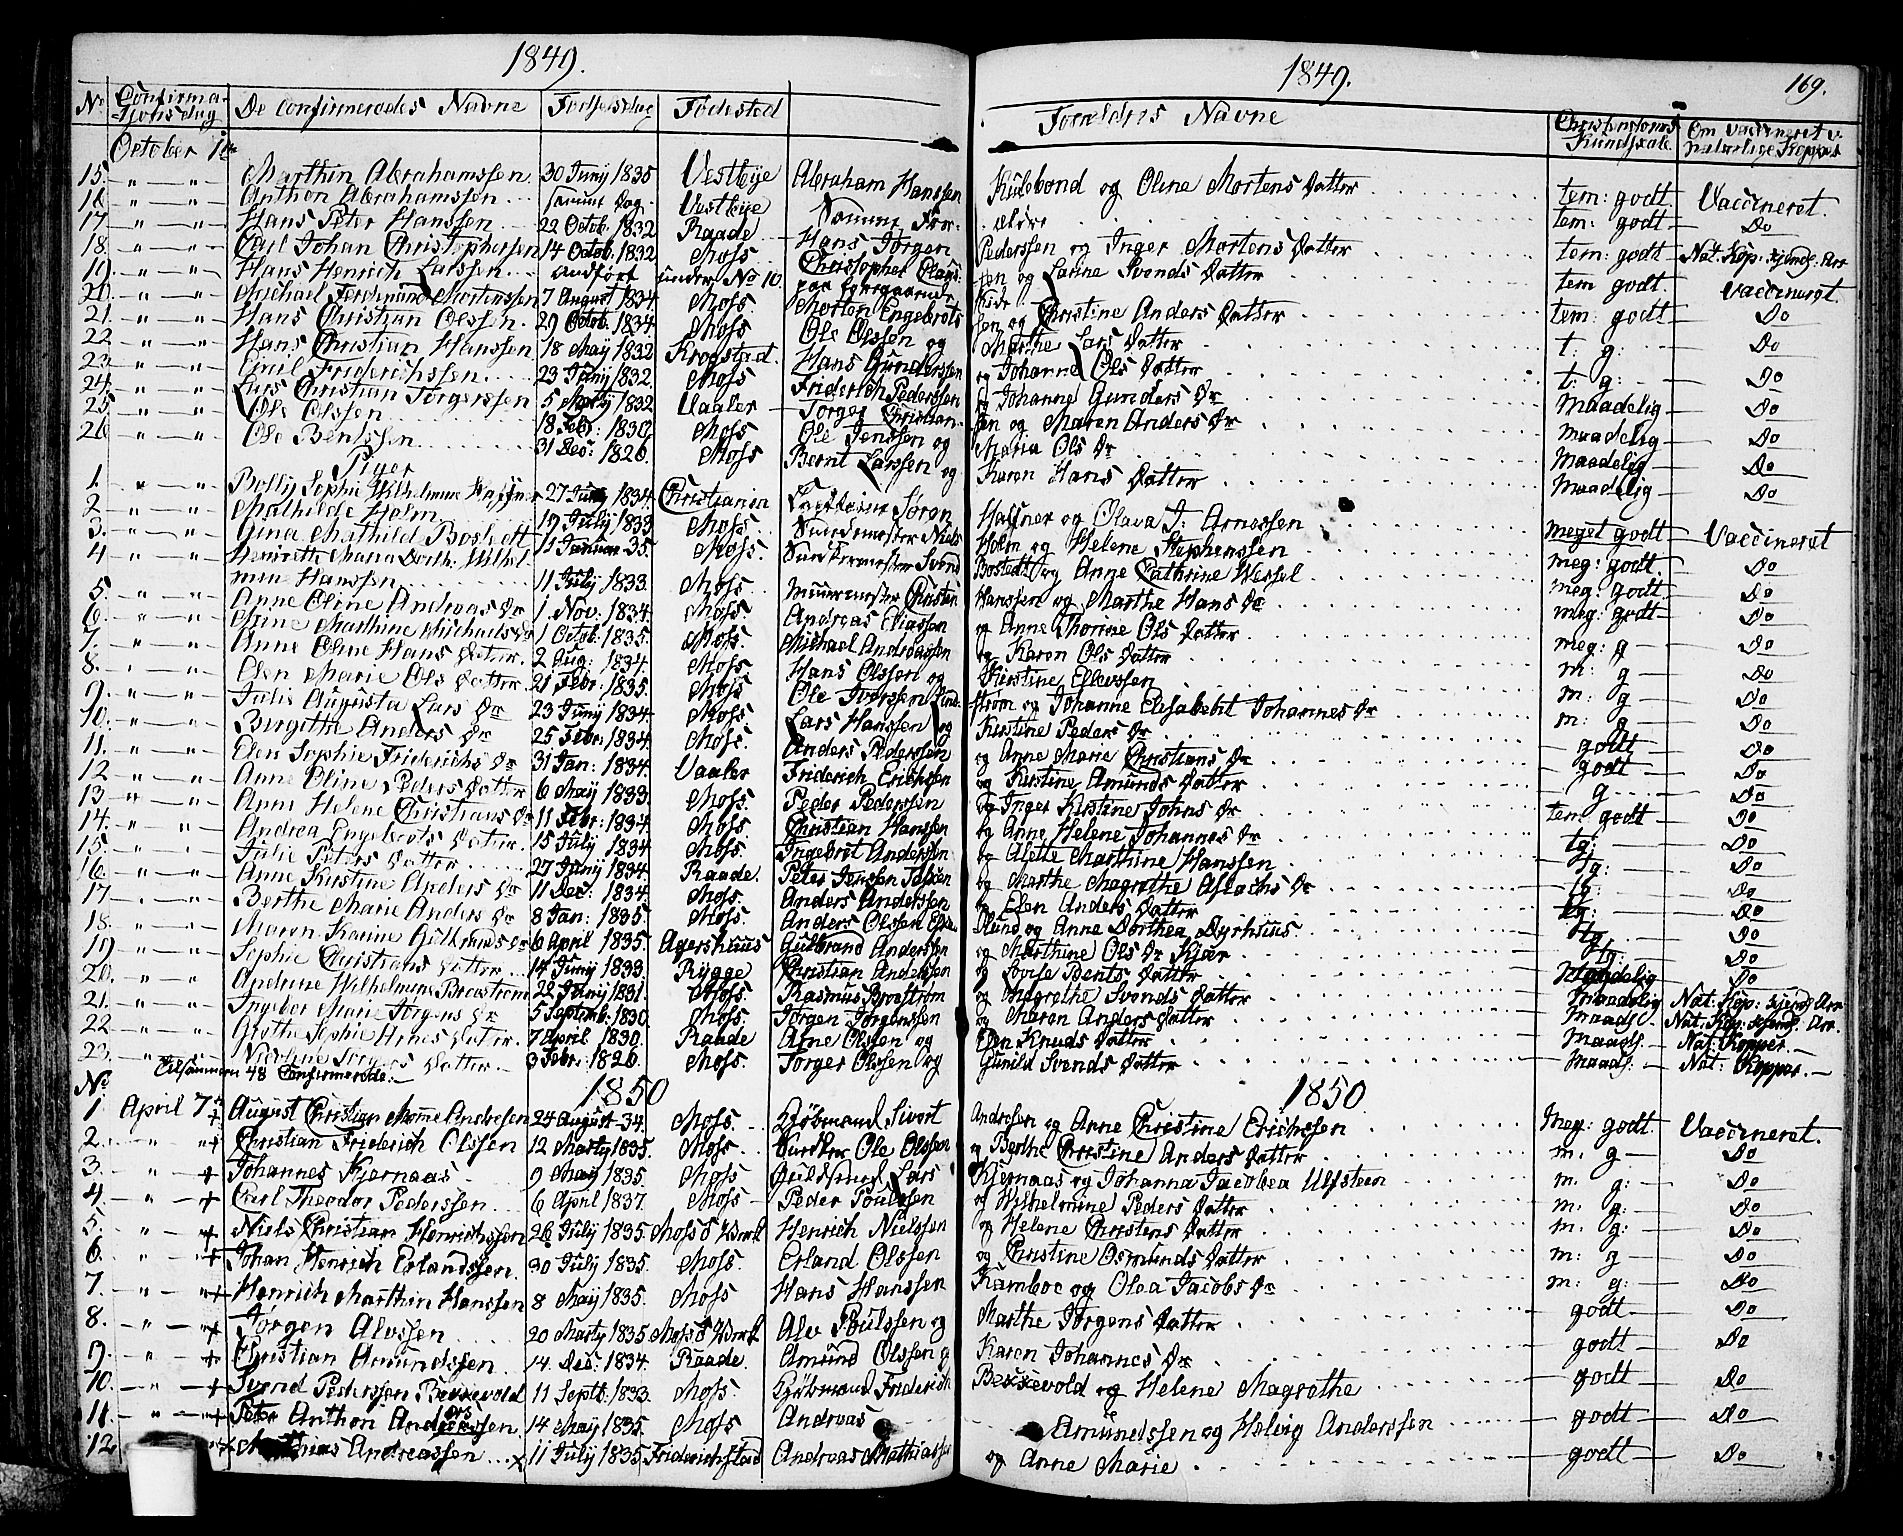 1849.
1849.
169.
No Confirma-tjons dag De Confirmeredes Navne Fødselsdag Fødested Forældres Navne Christendoms Kundskab Om Vaccineret v. naturlige Kopper
October 1ste
15. Marthin Abrahamssen 30 Juny 1835 Vestbye Abraham Hanssen Kulebond og Oline Mortens Datter tem: godt Vaccineret.
16 Anthon Abrahamssen samme Dag Vestbye Samme Forældre tem: godt Do
17 Hans Peter Hanssen 22 Octob. 1832 Raade Hans Jørgen Pederssen og Inger Mortens Datter tem: godt Nat: Kop: Kjends: Arr
18. Carl Johan Christophersen 14 Octob. 1832 Moss Christopher Clausen og Larine Svends Datter tem godt Vaccineret.
19. Hans Henrich Larssen andført under No 10. paa foregaaende Side
20. Michael Ferdinand Mortenssen 7 August 1834 Moss Morten Engebretssen og Christine Anders Datter tem: godt Do
21. Hans Christian Olssen 29 Octob. 1834. Moss Ole Olssen og Marthe Lars Datter t: g: Do
22 Hans Christian Hanssen 18 May 1832 Krogstad. Hans Gunderssen og Johanne Ols Datter t: g: Do
23. Emil Friderichssen 23 Juny 1832. Moss Friderich Pederssen og Johanne Gunders Dr Maadelig Do
24. Lars Christian Jørgenssen 5 Marty 1832 Vaaler Jørger Christian-sen og Maren Anders Dr maadelig Do
25. Ole Olssen 18 Febr: 1830. Moss Ole Jenssen og Maria Ols Dr Maadelig Do
26 Ole Bentssen 31 Dec: 1826. Moss Bernt Larssen og Karen Hans Datter Maadelig Do
Piger
1. Bolly Sophie Wilhelmine 27 Juny 1834. Christiania Søren Haffner og Olava J: Arnessen meget godt Vaccineret
2 Mathilde Holm 19 July 1833 Moss Niels Holm og Helene Stephenssen meg: godt Do
3. Gina Mathild Bostedt 11 Januar 35. Moss. Svend Bostedt og Anne Cathrine Wessel meg: godt Do
4 Henriette Maria Dorth: Wilhelmine Hanssen 11 July 1833 Moss muurmester Christian Hanssen og Marthe Hans Dr meg: godt Do
5 Anne Oline Andreas Dr 1. Nov. 1834. Moss. Andreas Eliassen og Anne Thorine Ols Datter meg: g Do
6. Marthine Michaels Dr 1 Octob. 1835. Moss. Michael Andreassen og Karen Ols Datter m: g Do
7. Anne Oline Hans Datter. 2 Aug: 1834. Moss Hans Olssen og Kirstine Ellevssen m: g Do
8. Elen Marie Ols Datter 21 Febr: 1835. Moss Ole Iverssen Lindstrøm og Johanne Elisabeht Johannes Dr m: g Do
9. Julie Augusta Lars Dr 23 Juny 1834 Moss Lars Hanssen og Kirstine Peders Dr godt Do
10. Birgitte Anders Dr 25 Febr: 1834. Moss. Anders Pederssen og Anne Marie Christians Dr godt Do
11. Elen Sophie Friderichs Dr 31 Jan: 1834. Vaaler Friderich Erichsen og Kirstine Amunds Datter g Do
12 Anne Oline Peders Datter 6 May 1833. Moss. Peder Pederssen og Inger Kirstine Johns Dr tem godt Do
13 Anne Helene Christians Dr 11 Febr: 1834. Moss. Christian Hanssen og Anne Helene Johannes Dr tg: Do
14. Andrea Engebrets Datter. 15 July 1834 Moss. Ingebret Anderssen og Alette Marthine Hanssen tg: Do
15. Julie Peters Datter 27 Juny 1834 Raade. Peter Jenssen og Marthe Magrethe Aslachs Dr tg: Do
16. Anne Kirstine Anders Dr 11 Dec: 1834. Moss. Anders Anderssen og Elen Anders Datter tg: Do
17. Berthe Marie Anders Dr 8 Jan: 1835. Moss. Anders Olssen og Anne Dorthea Dyrhuus tg Do
18. Maren Karine Gulbrands Dr 6 April 1835. Agershuus Gulbrand Anderssen og Marthine Ols Dr Kjær tg: Do
19 Sophie Christians Datter 14 Juny 1833. Rygge Christian Anderssen og Lovise Bents Datter Maadelig Do
20. Andrine Wilhelmine Broestrøm 28 Juny 1831. Moss. Rasmus Broestrøm og Magrethe Svends Datter maadelig Nat: Kop: Kjends Arr
21. Ingebor Marie Jørgens Dr 5 Septemb. 1830. Moss Jørgen Jørgenssen og Maren Anders Datter Maadl. Nat: Kop: Kjends. Arr.
22 Grethe Sophie Arnes Datter. 7 April 1830. Raade Arne Olssen og Elen Knuds Datter Maadl. Nat: Kopper.
23. Nicoline Jørgers Datter 3 Febr: 1826. Moss Jørger Olssen og Gunild Svends Datter Maadl: Nat: Kopper.
Tilsammen 48 Confirmerede.
No 1850 1850.
1 April 7de + August Christian Mome Andresen 24 August 34. Moss. Kjøbmand Sivert Andresen og Anne Christine Erichssen Meg: godt. Vaccineret.
2. + Christian Friderich Olssen 12 Marty 1835. Moss. Ole Olssen og Berthe Christine Anders Datter m: g Do
3. + Johannes Kjernaas 9 May 1835. Moss. Guldsmed Lars Kjernaas og Johanna Jacobea Ulfsteen m: g: Do
4. + Carl Theodor Pederssen 6 April 1837. Moss Peder Poulssen og Wilhelmine Peders Datter m: g: Do
5. + Niels Christian Henrichssen 26 July 1835. Moss Værk Henrich Nielssen og Helene Christens Datter m: g: Do
6. + Johan Henrich Erlandssen. 30 July 1835. Moss. Erland Olssen og Christine Osmunds Datter m: g Do
7. + Henrich Marthin Hanssen 8 May 1835. Moss Hans Hanssen Kamboe og Olea Jacobs Dr m: g: Do
8. + Jørgen Alvssen 20 Marty 1835 Moss Værk Alv Poulssen og Marthe Jørgens Datter godt Do
9. + Christian Amundssen 14. Dec: 1834. Raade Amund Olssen og Karen Johannes Dr godt Do
10. + Svend Pederssen Bexxevold 11 Septb. 1833. Moss. Kjøbmand Friderich Bexxevold og Helene Magrethe godt Do
11 + Peter Anthon Anderssen 14 May 1835. Moss Andreas Amundssen og Helvig Anderssen godt Do
12 + Mathias Andreassen 11 July 1835 Friderichstad Andreas Mathiassen og Anne Marie godt Do